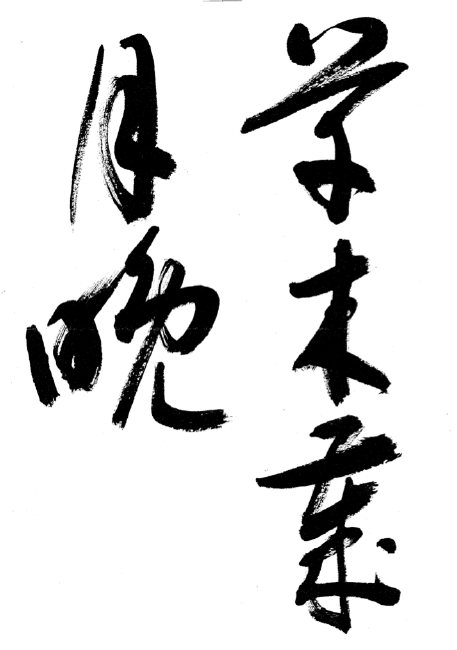 学未歳
月晚